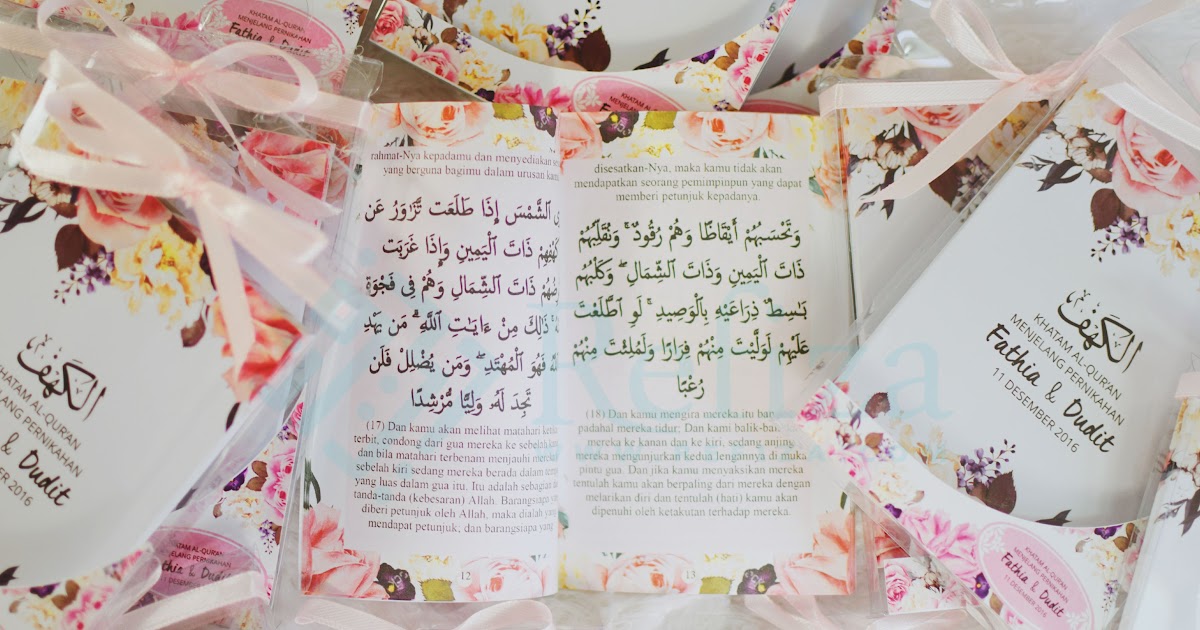 KHATAM AL-QURAN
MENJELANG PERNIKAHAN
Fathia & Dudit
rahmat-Nya kepadamu dan menyediakan
yang berguna bagimu dalam urusan
ٱلشَّمْسَ إِذَا طَلَعَت تَّزَٰوَرُ عَن
ذَاتَ ٱلْيَمِينِ وَإِذَا غَرَبَت
ذَاتَ ٱلشِّمَالِ وَهُمْ فِى فَجْوَةٍ
ذَٰلِكَ مِنْ ءَايَٰتِ ٱللَّهِ ۗ مَن يَهْدِ
فَهُوَ ٱلْمُهْتَدِ ۖ وَمَن يُضْلِلْ فَلَن
تَجِدَ لَهُۥ وَلِيًّا مُّرْشِدًا
(17) Dan kamu akan melihat matahari
terbit, condong dari gua mereka ke sebelah
dan bila matahari terbenam menjauhi
sebelah kiri sedang mereka berada dalam
yang luas dalam gua itu. Itu adalah sebagian
tanda-tanda (kebesaran) Allah. Barangsiapa
diberi petunjuk oleh Allah, maka dialah
mendapat petunjuk, dan barangsiapa yang
12
disesatkan-Nya, maka kamu tidak akan
mendapatkan seorang pemumpinpun yang dapat
memberi petunjuk kepadanya.
وَتَحْسَبُهُمْ أَيْقَاظًا وَهُمْ رُقُودٌ ۚ وَنُقَلِّبُهُمْ
ذَاتَ ٱلْيَمِينِ وَذَاتَ ٱلشِّمَالِ ۖ وَكَلْبُهُم
بَٰسِطٌ ذِرَاعَيْهِ بِٱلْوَصِيدِ ۚ لَوِ ٱطَّلَعْتَ
عَلَيْهِمْ لَوَلَّيْتَ مِنْهُمْ فِرَارًا وَلَمُلِئْتَ مِنْهُمْ
رُعْبًا
(18) Dan kamu mengira mereka itu
padahal mereka tidur; Dan kami
mereka ke kanan dan ke kiri, sedang
mereka mengunjurkan kedua lengannya di muka
pintu gua. Dan jika kamu menyaksikan mereka
tentulah kamu akan berpaling dari mereka dengan
melarikan diri dan tentulah (hati) kamu akan
dipenuhi oleh ketakutan terhadap mereka.
13
Refiza
الكهف
KHATAM AL-QURAN
MENJELANG PERNIKAHAN
Fathia & Dudit
11 DESEMBER 2016
KHATAM AL-QURAN
MENJELANG PERNIKAHAN
Fathia & Dudit
11 DESEMBER 2016
الكهف
KHATAM AL-QURAN
PERNIKAHAN
& Dudit
2016
KHATAM AL-QURAN
MENJELANG PERNIKAHAN
Fathia & Dudit
11 DESEMBER
KHATAM AL-QURAN
MENJELANG PERNIKAHAN